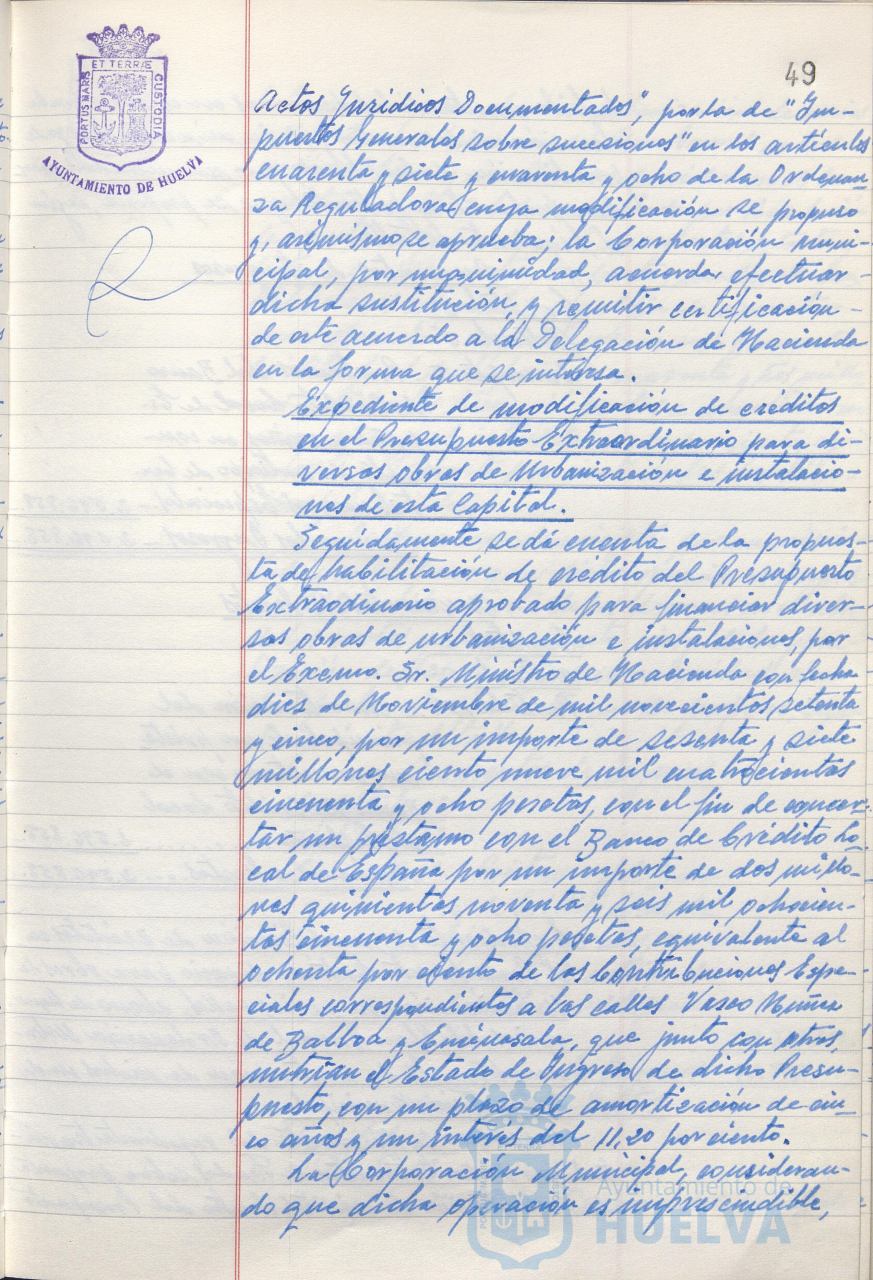 49
ET TERRÆ
PORTUS MARIS
CUSTODIA
AYUNTAMIENTO DE HUELVA
Actos Jurídicos Documentados", por la de "Im-
puestos Generales sobre sucesiones" en los artículos
cuarenta y siete y cuarenta y ocho de la Ordenan-
za Reguladora cuya modificación se propuso
y, asimismo se aprueba; la Corporación muni-
cipal, por unanimidad, acuerda efectuar
dicha sustitución, y remitir certificación
de este acuerdo a la Delegación de Hacienda
en la forma que se interesa.
Expediente de modificación de créditos
en el Presupuesto Extraordinario para di-
versas obras de Urbanización e instalacio-
nes de esta Capital.
Seguidamente, se dá cuenta de la propues-
ta de habilitación de crédito del Presupuesto
Extraordinario aprobado para financiar diver-
sas obras de urbanización e instalaciones, por
el Excmo. Sr. Ministro de Hacienda con fecha
diez de Noviembre de mil novecientos setenta
y cinco, por un importe de sesenta y siete
millones ciento nueve mil cuatrocientas
cincuenta y ocho pesetas, con el fin de concer-
tar un préstamo con el Banco de Crédito Lo-
cal de España por un importe de dos millo-
nes quinientas noventa y seis mil ochocien-
tas cincuenta y ocho pesetas, equivalente al
ochenta por ciento de las Contribuciones Espe-
ciales correspondientes a las calles Vasco Nuñez
de Balboa y Enciasala, que junto con otros,
nutrian el Estado de Ingreso de dicho Presu-
puesto, con un plazo de amortización de cin-
co años y un interés del 11,20 por ciento.
La Corporación Municipal, consideran-
do que dicha operación es imprescindible,
Ayuntamiento de
HUELVA